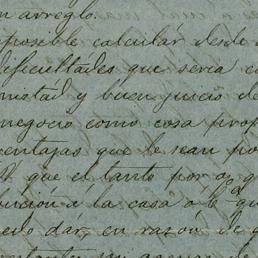 n arreglo.
posible calcular desde
dificultades que seria e
mistad y buen juicio de
negocio como cosa prop
ventajas que le sean po
que el tanto por % q
bucion á la casa ó le q
edo dár, en razon de q